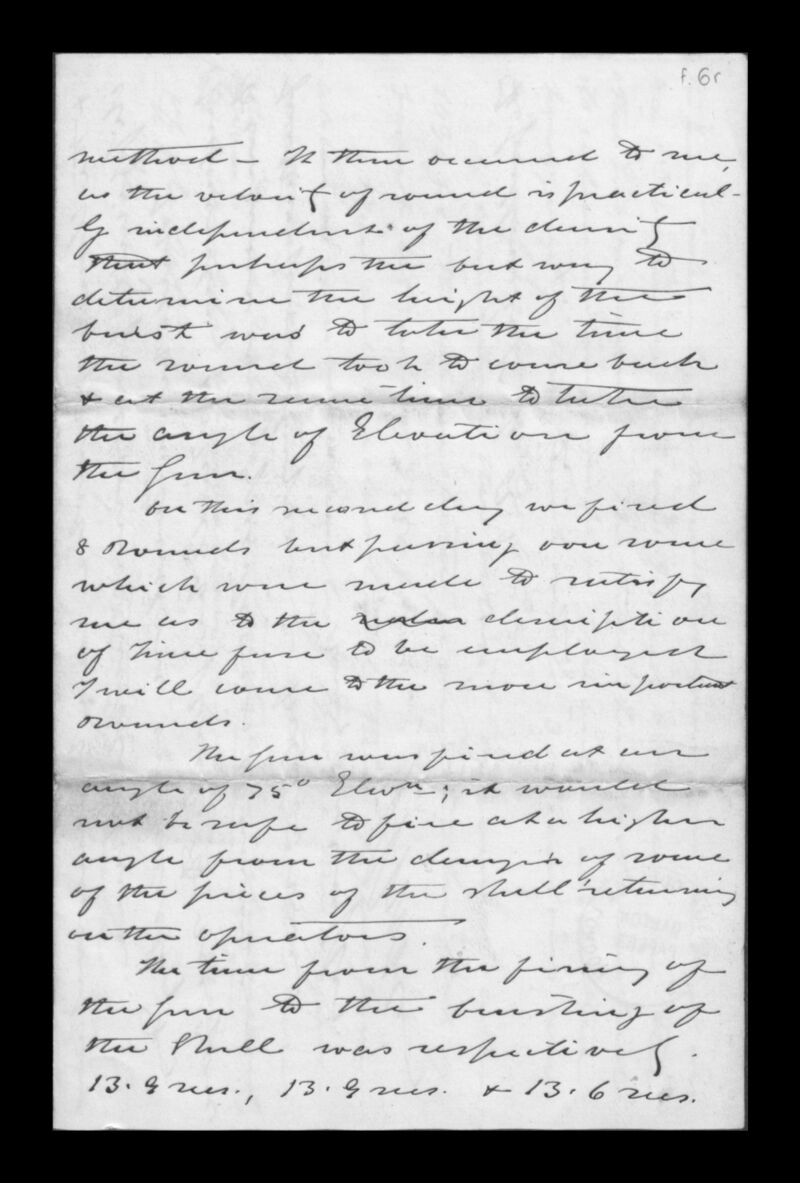 f. 6r
method – It then occurred to me,
as the velocity of sound is practical-
ly independent of the density
that perhaps the best way to
determine the height of the
burst was to take the time
the sound took to come back
& at the same time to take
the angle of Elevation from
the Gun.
On this second day we fired
8 rounds but passing over some
which were made to satisfy
me as to the description
of Time fuse to be employed
I will come to the more important
rounds.
The gun was fired at an
angle of 75° Elevn; it would
not be safe to fire at a higher
angle from the danger of some
of the pieces of the shell returning
on the operators.
The time from the firing of
the gun to the bursting of
the Shell was respectively.
13.9 secs., 13.9 secs. & 13.6 secs.